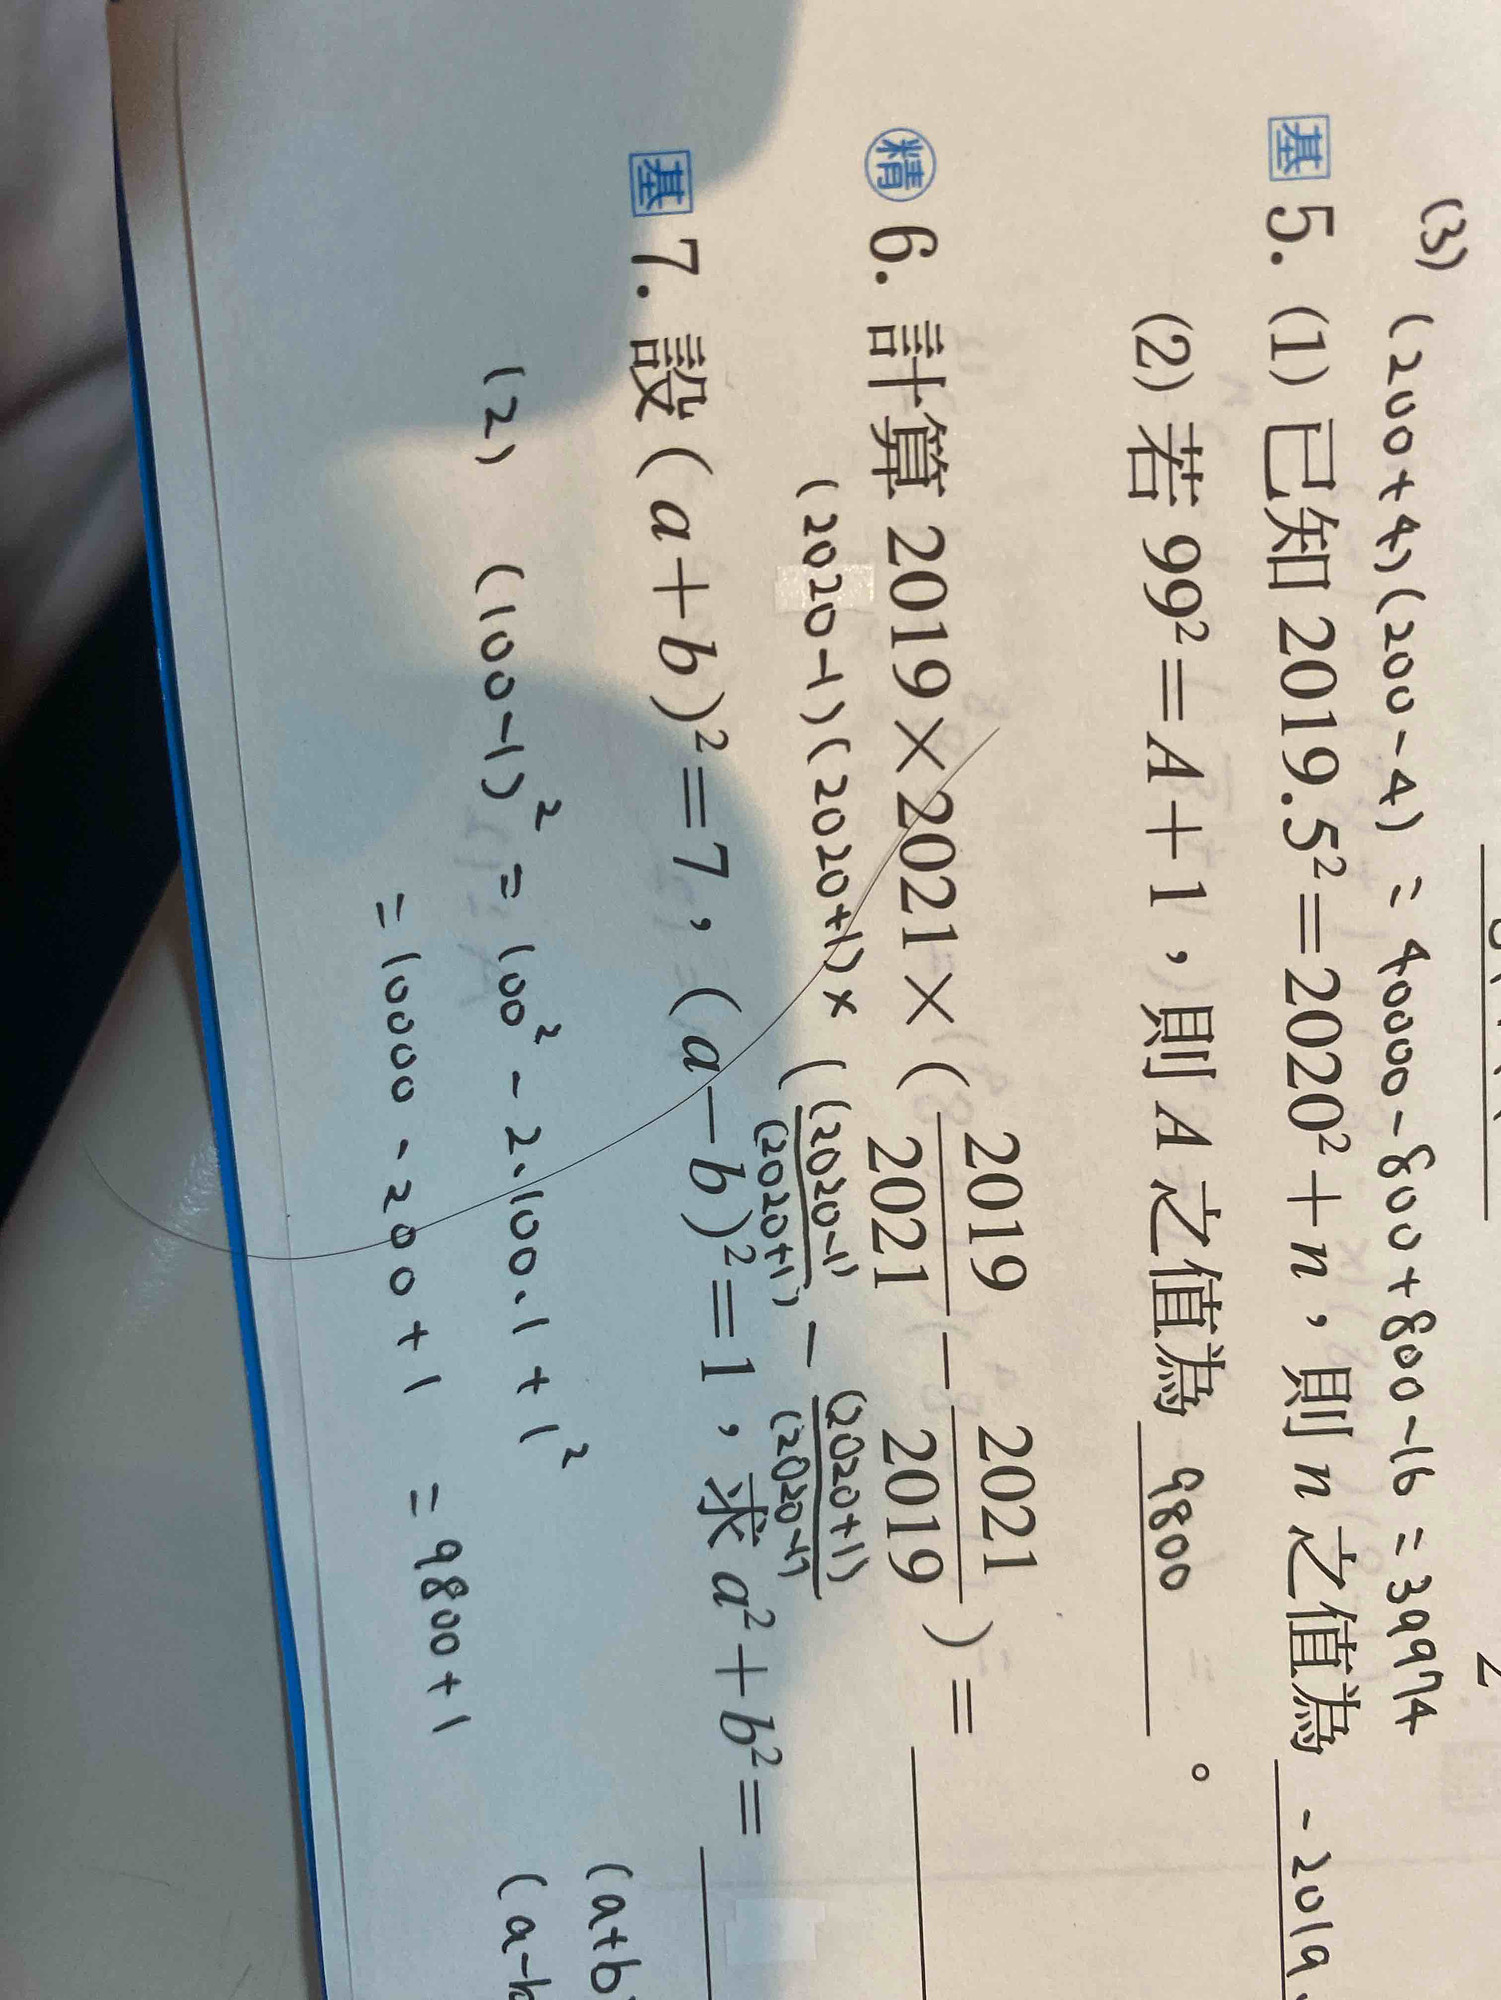 (3) (200+4)(200-4) = 40000-800+800-16 = 39974
基 5. (1) 已知 2019.5²=2020²+n，則 n 之值為 -2019.
(2) 若 99²=A+1，則 A 之值為 9800 。
精 6. 計算 2019×2021×(2019/2021-2021/2019)=
(2020-1)(2020+1)×((2020-1)/(2020+1)-(2020+1)/(2020-1)
基 7. 設 (a+b)²=7，(a-b)²=1，求 a²+b²=
(a+b
(2) (100-1)² = 100² - 2·100·1 + 1²
(a-b
= 10000 - 200 + 1 = 9800+1